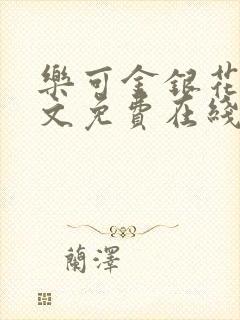 樂可金銀花
文免費在綫
蘭澤